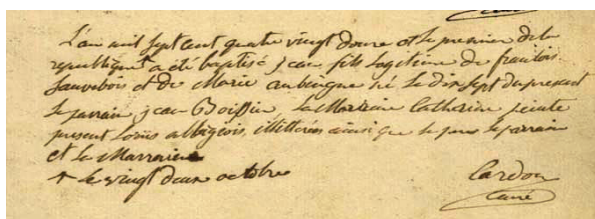 L'an mil sept cent quatre vingt douze et le premier de la
republique a été baptisé jean fils legitime de francois
Sauvebois et de Marie aubingue né le dix sept du present
le parrain jean Boissin la Marraine Catherine
present Louis albigeois, illitterés ainsi que le pere le parrain
et la Marraine
le vingt deux octobre
Cardon
curé